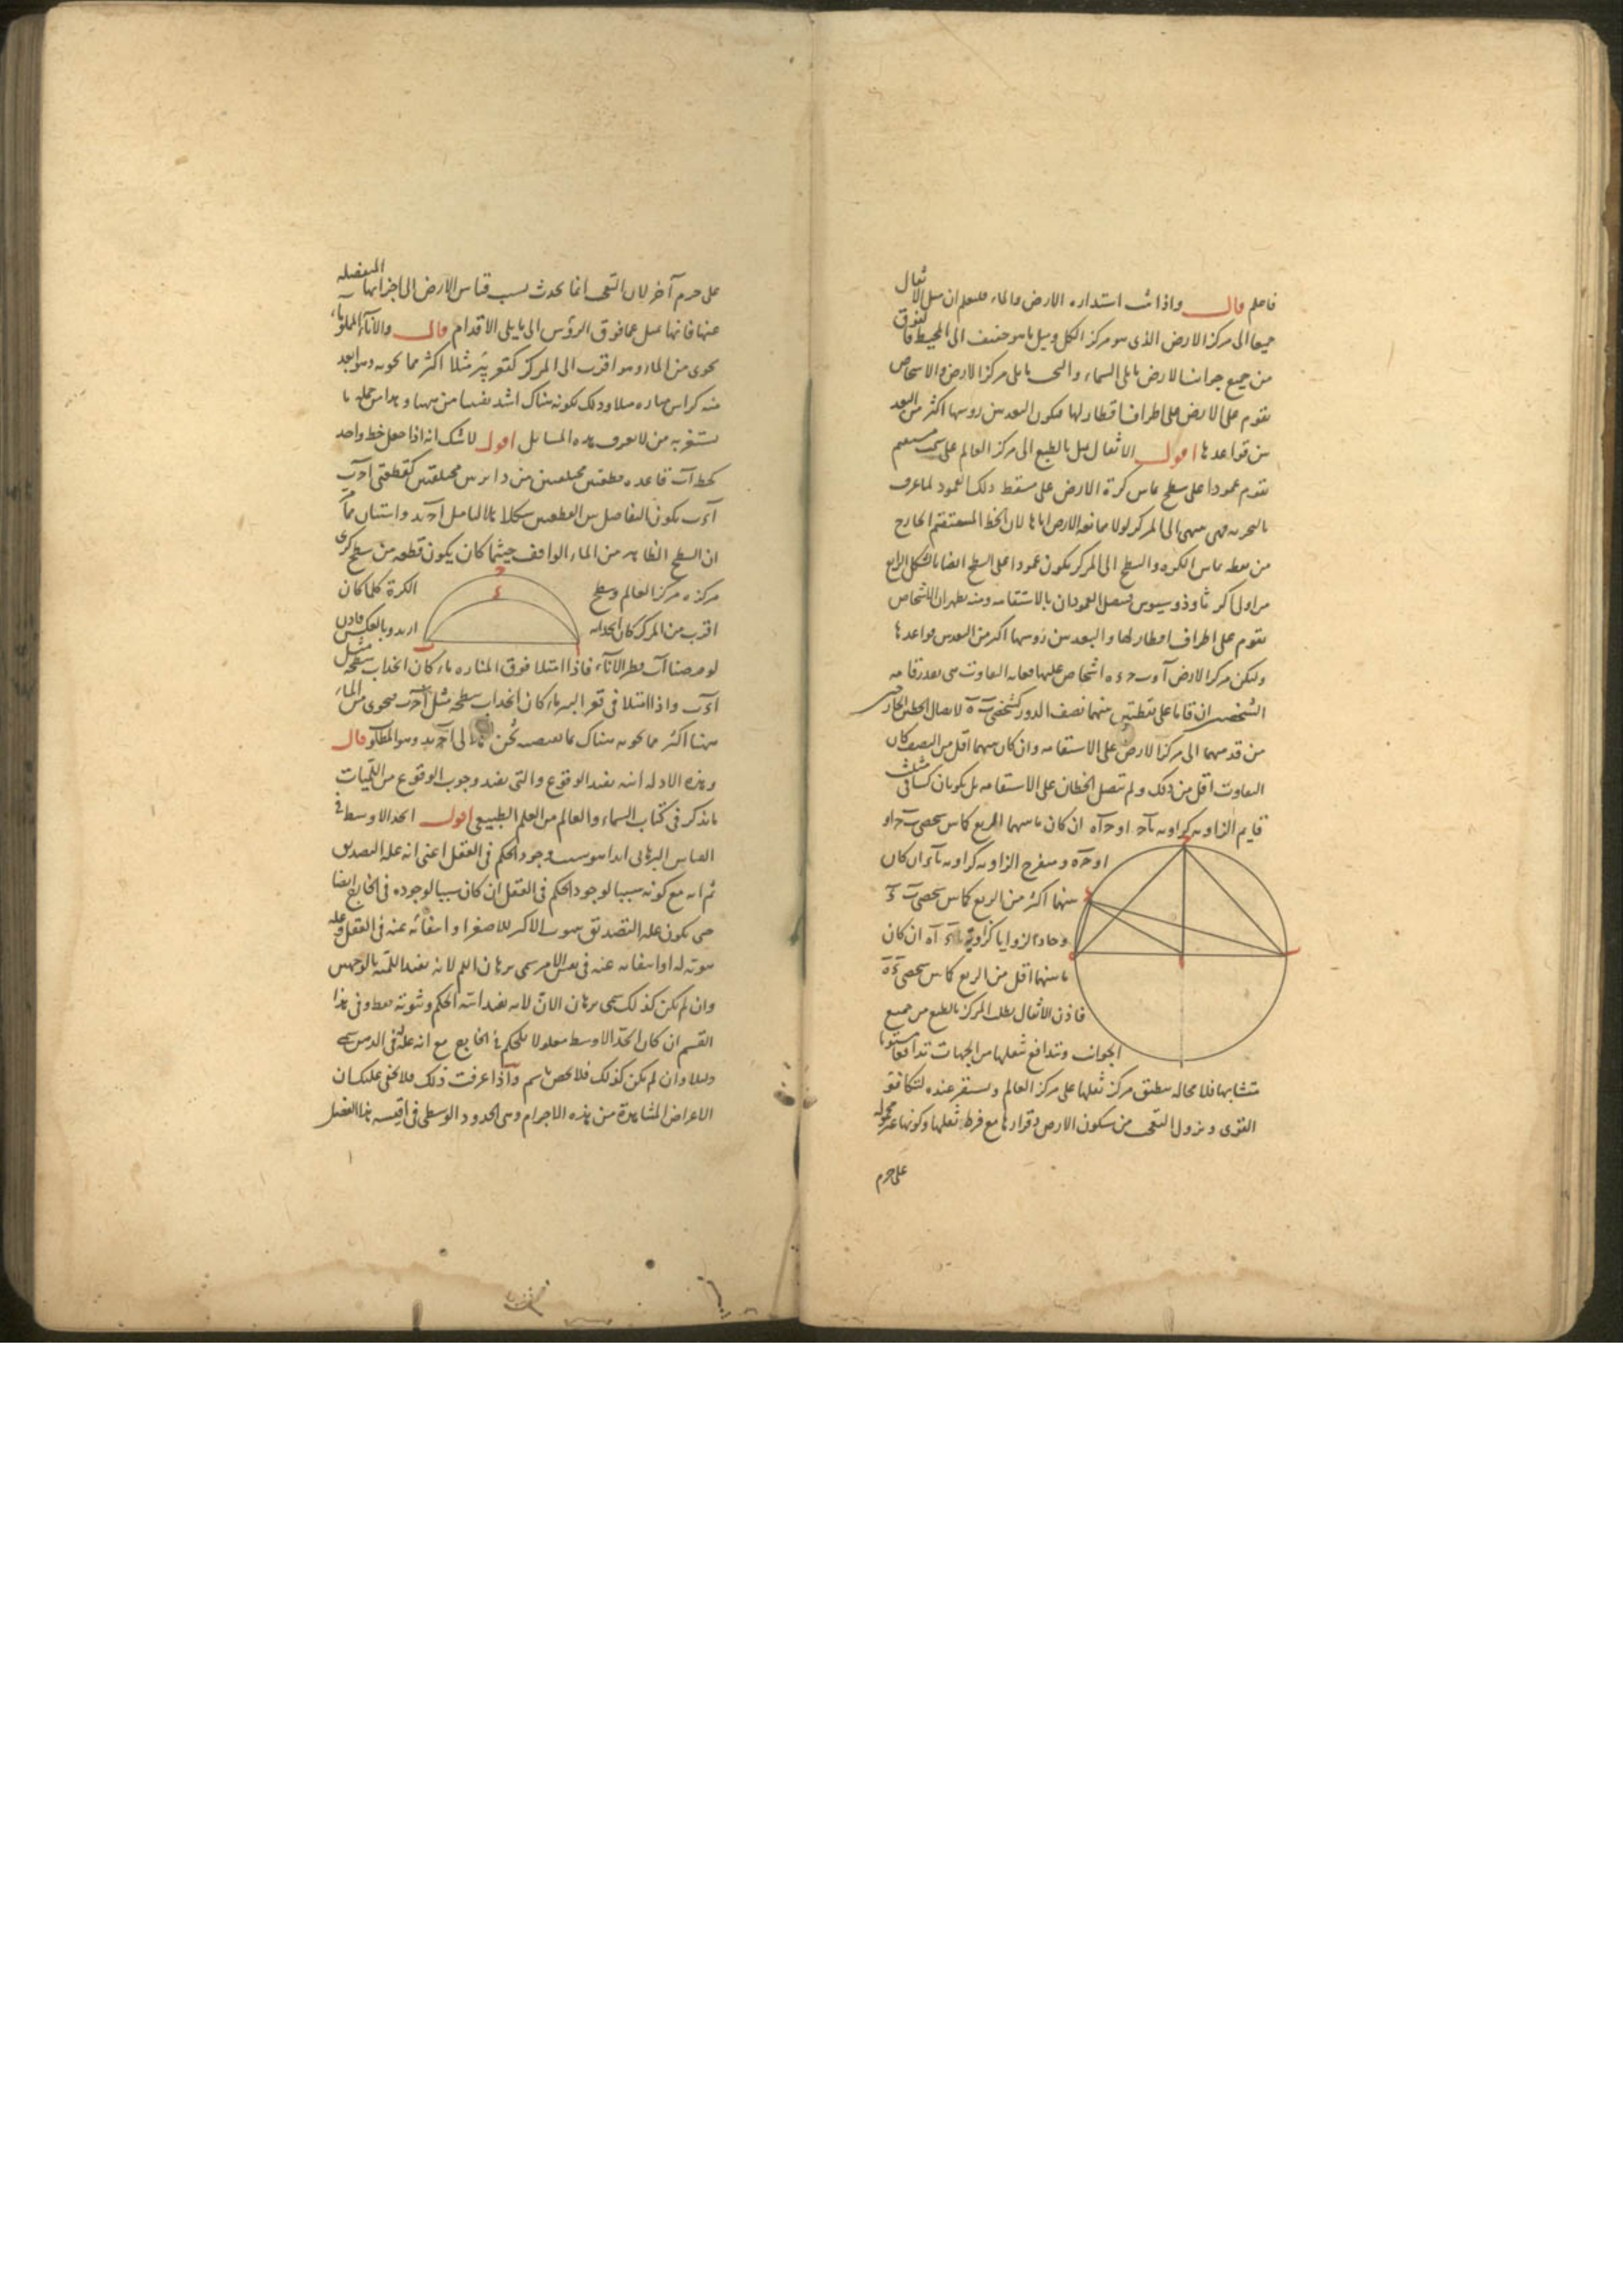 فاعلم قال واذا ثبت استداره الارض والماء فليعلم ان ميل الاثقال
جميعا الى مركز الارض الذى هو مركز الكل وميل ما هو خفيف الى المحيط فالفوق
من جميع جوانب الارض ما يلى السماء والتحت ما يلى مركز الارض والاشخاص
تقوم على الارض على اطراف اقطار لها فيكون البعد بين رؤسها اكثر من البعد
بين قواعدها اقول الاثقال تميل بالطبع الى مركز العالم على سمت مستقيم
يقوم عمودا على سطح يماس كرة الارض على مسقط ذلك العمود لما عرف
بالتجربه فهى تنتهى الى المركز لولا ممانعه الارض اياها لان الخط المستقيم الخارج
من نقطه تماس الكره والسطح الى المركز يكون عمودا على السطح ايضا بالشكل الرابع
من اولى اكر ثاوذوسيوس فيتصل العمودان بالاستقامه ومنه يظهر ان الاشخاص
تقوم على اطراف اقطار لها والبعد بين رؤسها اكثر من البعد بين قواعدها
وليكن مركز الارض آ و ب ح ء ه اشخاص عليها فغايه التفاوت هى بقدر قامه
الشخصين ان قاما على نقطتين بينهما نصف الدور كشخصى ب ه لاتصال الخطين الخارجين
من قدميهما الى مركز الارض على الاستقامه وان كان بينهما اقل من النصف كان
التفاوت اقل من ذلك ولم يتصل الخطان على الاستقامه بل يكونان كساقى مثلث
قايم الزاويه كزاويه ب آ ح او ح آ ه ان كان ما بينهما الربع كما بين شخصى ب ح او
او ح ه ومنفرج الزاويه كزاويه ب آ ء ان كان
بينهما اكثر من الربع كما بين شخصى ب ء
وحاد الزوايا كزاوية ء آ ه ان كان
ما بينهما اقل من الربع كما بين شخصى ء ه
فاذن الاثقال يطلب المركز بالطبع من جميع
الجوانب وتتدافع ثقلها من الجهات تدافعا مستويا
متشابها فلا محاله ينطبق مركز ثقلها على مركز العالم ويستقر عنده لتكافؤ
القوى ويزول التعجب من سكون الارض وقرارها مع فرط ثقلها وكونها غير محموله
على جرم
على جرم آخر لان التعجب انما يحدث بسبب قياس الارض الى اجزائها المنفصله
عنها فانها تميل عما فوق الرؤس الى ما يلى الاقدام قال والاناء المملو ماء
يحوى من الماء وهو اقرب الى المركز كقعر بير مثلا اكثر مما يحويه وهو ابعد
منه كراس مناره مثلا وذلك لكونه هناك اشد تقببا من ههنا وهذا من جمله ما
يستغربه من لا يعرف هذه المسايل اقول لا شك انه اذا جعل خط واحد
كخط آ ب قاعده قطعتين مختلفتين من دايرتين مختلفتين كقطعتى ا ح ب
ا ء ب يكون التفاصل بين القطعتين شكلا هلاليا مثل ا ح ب ء واستبان مما مر
ان السطح الظاهر من الماء الواقف حيثما كان يكون قطعه من سطح كرى
مركزه مركز العالم وسطح الكرة كلما كان
اقرب من المركز كان احدابه ازيد وبالعكس فاذن
لو فرضنا آ ب قطر الاناء فاذا امتلا فوق المناره ماء كان احداب سطحه مثل
ا ء ب واذا امتلا فى قعر البير ماء كان احداب سطحه مثل ا ح ب فيحوى من الماء
ههنا اكثر مما يحويه هناك بما يقتضيه ثخن هلالى ا ح ب ء وهو المطلوب قال
وهذه الادله انيه يفيد الوقوع والتى يفيد وجوب الوقوع من اللميات
ما يذكر فى كتاب السماء والعالم من العلم الطبيعى اقول الحد الاوسط فى
القياس البرهانى ابدا هو سبب وجود الحكم فى العقل اعنى انه عله التصديق
ثم انه مع كونه سببا لوجود الحكم فى العقل ان كان سببا لوجوده فى الخارج ايضا
حتى يكون عله التصديق بثبوت الاكبر للاصغر او انتفائه عنه فى العقل وعله
ثبوته له او انتفائه عنه فى نفس الامر سمى برهان اللم لانه يفيد اللميه بالوجهين
وان لم يكن كذلك سمى برهان الان لانه يفيد انيه الحكم وثبوته فقط وفى هذا
القسم ان كان الحد الاوسط معلولا للحكم فى الخارج مع انه عله له فى الذهن سمى
دليلا وان لم يكن كذلك فلا يخص باسم واذا عرفت ذلك فلا يخفى عليك ان
الاعراض المشاهدة من هذه الاجرام وهى الحدود الوسطى فى اقيسه هذا الفصل